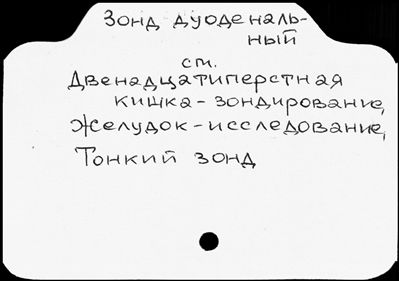 Зонд дуоденаль-
ный
см.
Двенадцатиперстная
кишка - зондирование,
Желудок - исследование,
Тонкий зонд